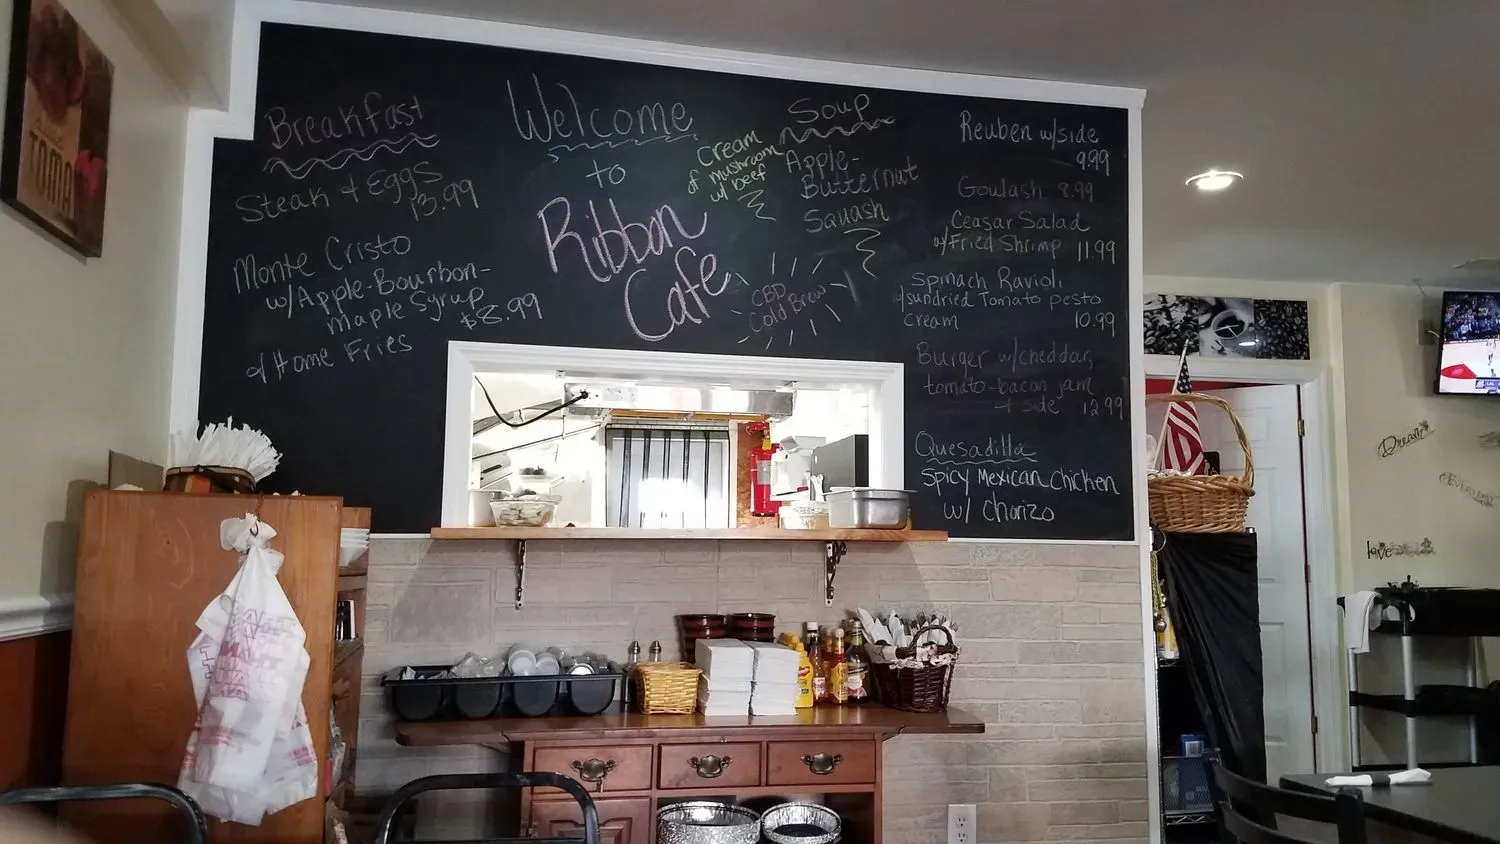 Breakfast
Steak & Eggs
13.99
Monte Cristo
w/Apple-Bourbon-
Maple Syrup
$8.99
w/Home Fries
Welcome
to
Ribbon
Cafe
Cream
of mushroom
w/ beef
Soup
Apple-
Butternut
Squash
CBD
Cold Brew
Reuben w/side
9.99
Goulash 8.99
Ceasar Salad
w/Fried Shrimp 11.99
Spinach Ravioli
w/sundried Tomato pesto
cream 10.99
Burger w/cheddar,
tomato-bacon jam
+ side 12.99
Quesadilla
Spicy Mexican Chicken
w/ Chorizo
TOMA
Dream
love